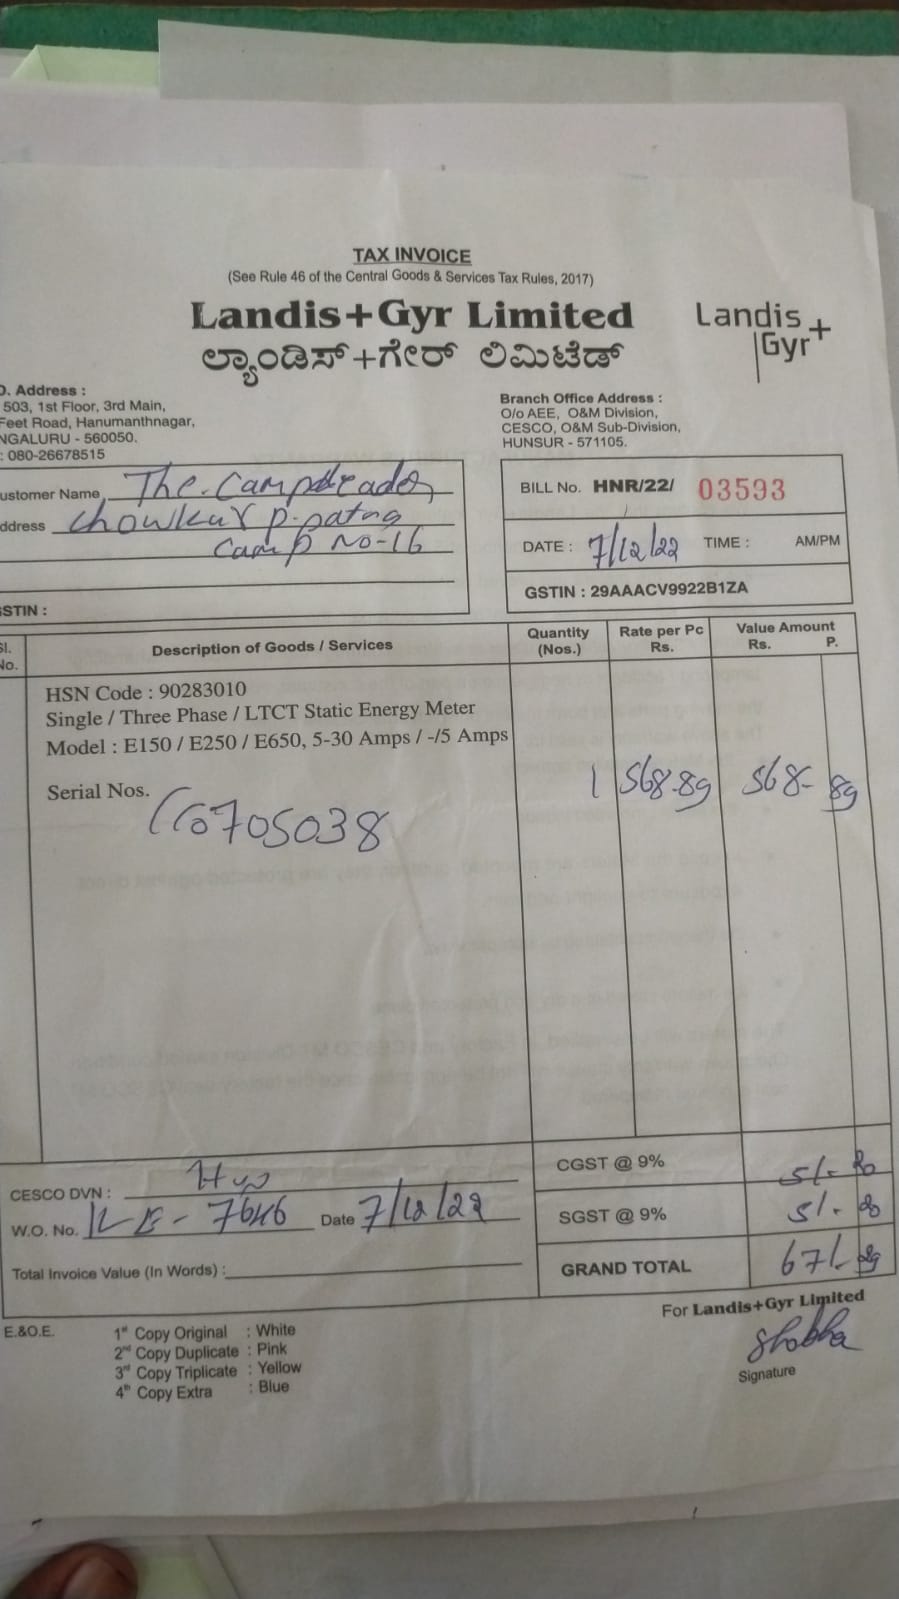 TAX INVOICE
(See Rule 46 of the Central Goods & Services Tax Rules, 2017)
Landis+Gyr Limited
ಲ್ಯಾಂಡಿಸ್+ಗೇರ್ ಲಿಮಿಟೆಡ್
Landis+
Gyr
O. Address :
503, 1st Floor, 3rd Main,
Feet Road, Hanumanthnagar,
NGALURU - 560050.
: 080-26678515
Branch Office Address :
O/o AEE, O&M Division,
CESCO, O&M Sub-Division,
HUNSUR - 571105.
ustomer Name The
ddress Chowkur P.
Camp No-16
STIN :
BILL No. HNR/22/ 03593
DATE : 7/12/22 TIME : AM/PM
GSTIN : 29AAACV9922B1ZA
Sl. No. Description of Goods / Services Quantity (Nos.) Rate per Pc Rs. Value Amount Rs. P.
HSN Code : 90283010
Single / Three Phase / LTCT Static Energy Meter
Model : E150 / E250 / E650, 5-30 Amps / -/5 Amps
Serial Nos. 1 568-89 568- 89
705038
CGST @ 9% 51- 20
CESCO DVN :
SGST @ 9% 51- 20
W.O. No. Date 7/12/22
GRAND TOTAL 671- 29
Total Invoice Value (In Words) :
For Landis+Gyr Limited
E.&O.E.
1st Copy Original : White
2nd Copy Duplicate : Pink
3rd Copy Triplicate : Yellow
4th Copy Extra : Blue
Shobha
Signature